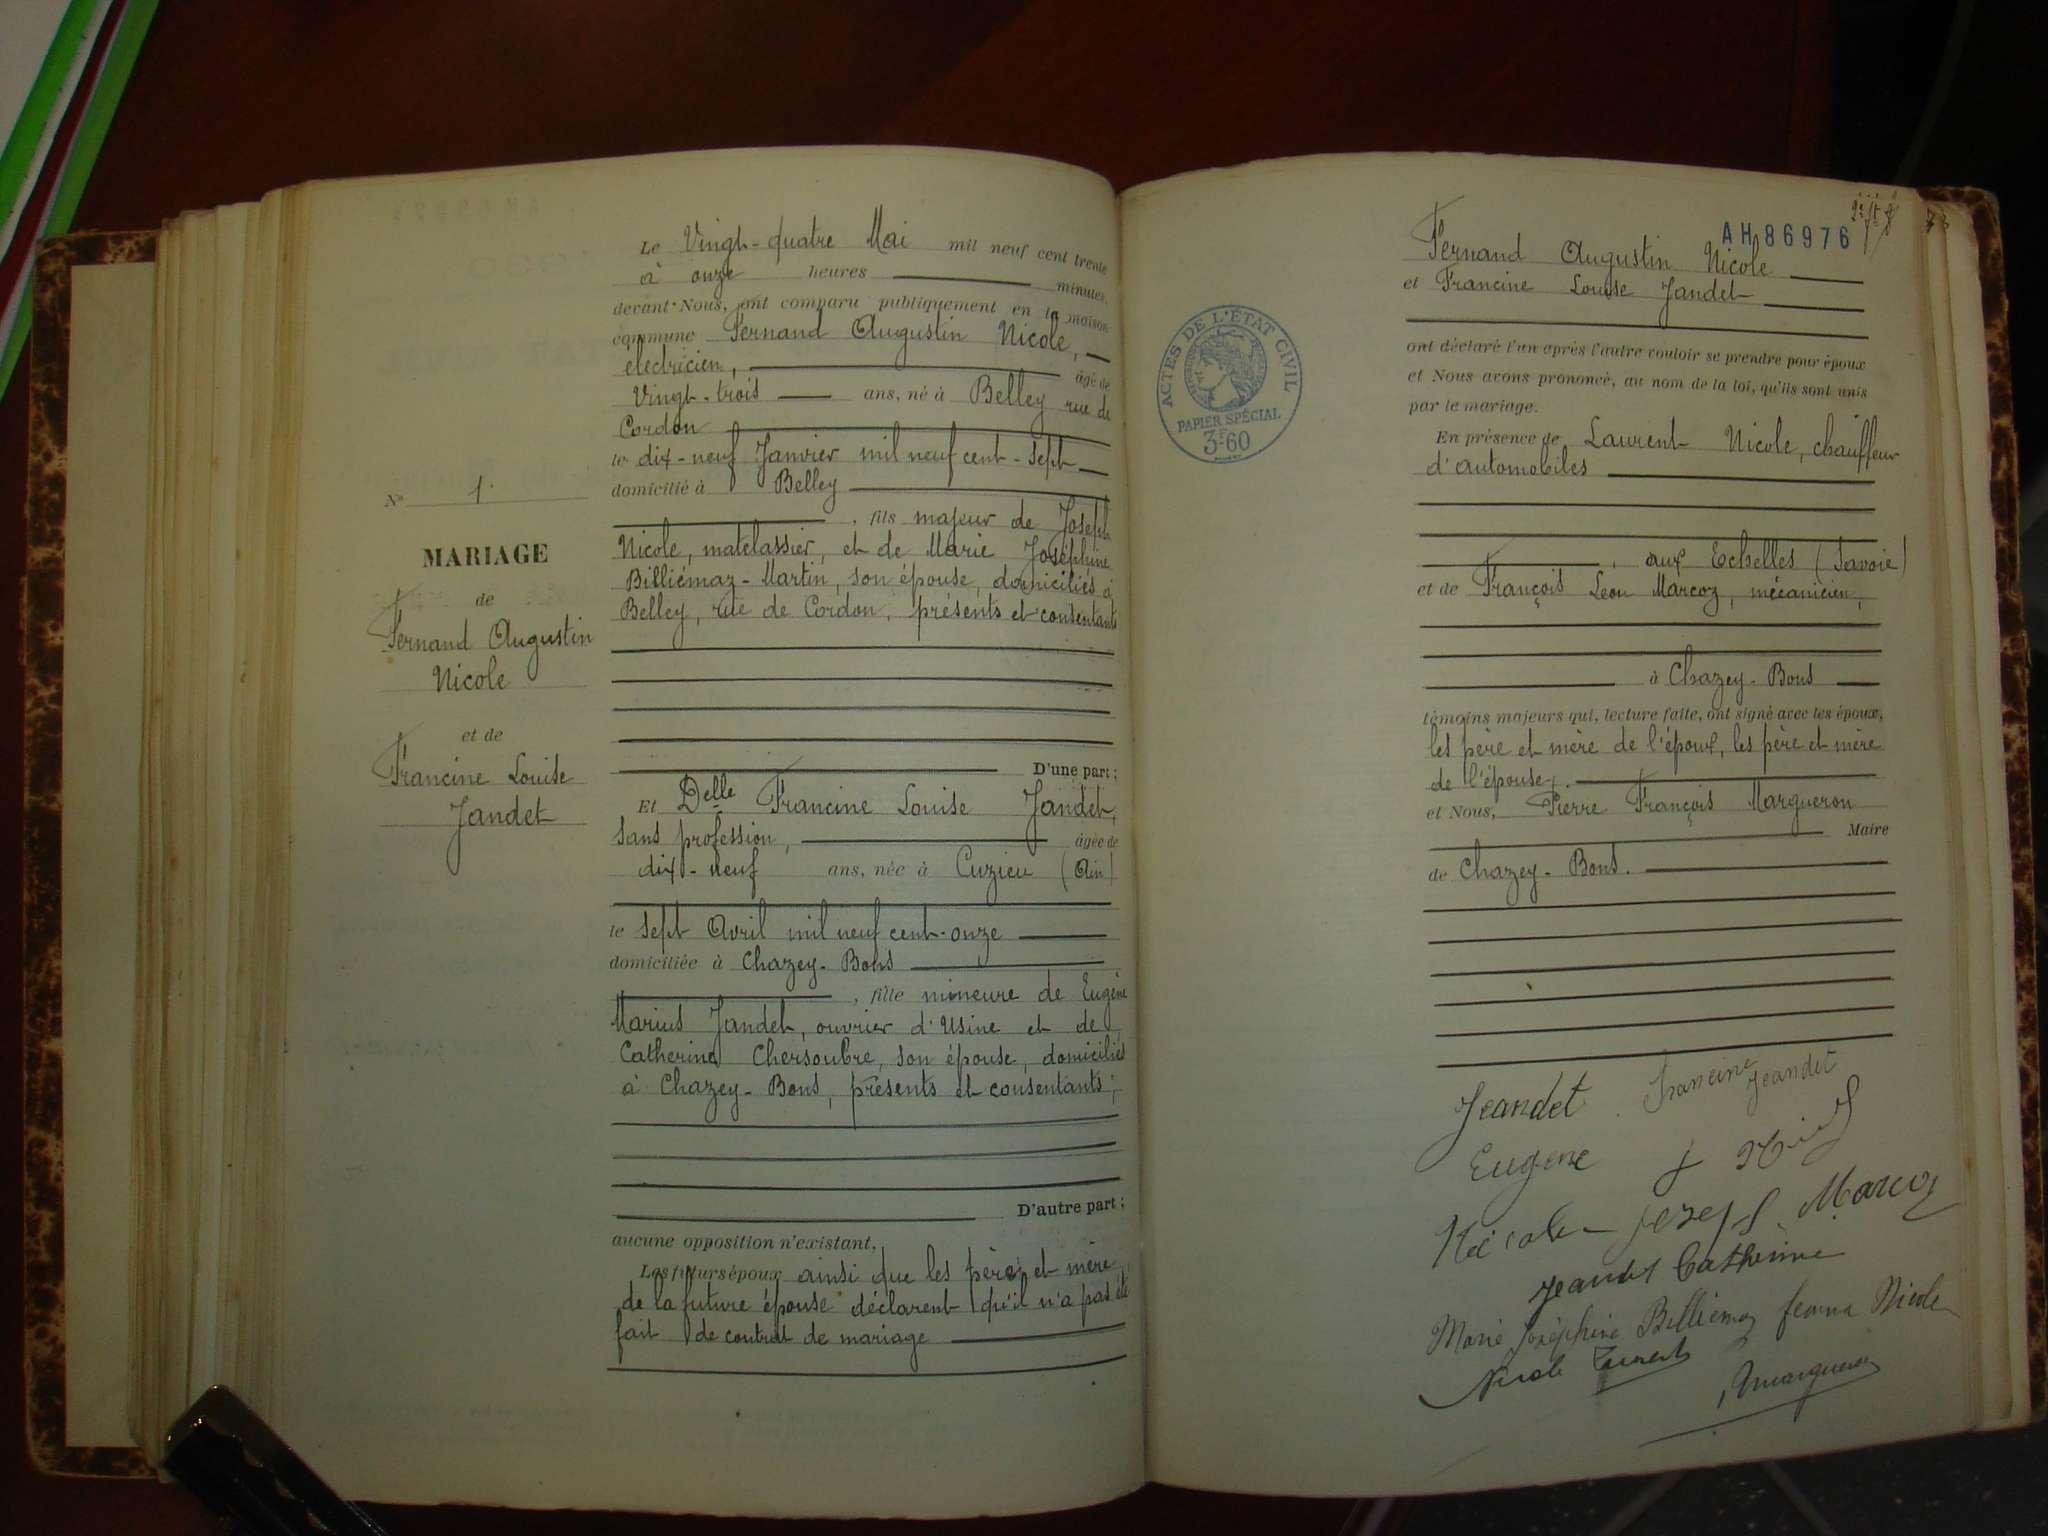 N° 1.
MARIAGE
de
Fernand Augustin
Nicole
et de
Francine Louise
Jandet
Le Vingt-quatre Mai mil neuf cent trente
à onze heures minutes,
devant Nous, ont comparu publiquement en la maison
commune Fernand Augustin Nicole,
électricien, âgé de
Vingt-trois ans, né à Belley rue de
Cordon
le dix-neuf Janvier mil neuf cent-sept
domicilié à Belley
, fils majeur de Joseph
Nicole, matelassier, et de Marie Joséphine
Billiémaz-Martin, son épouse, domiciliés à
Belley, rue de Cordon, présents et consentants
D'une part;
Et Delle Francine Louise Jandet,
sans profession, âgée de
dix-neuf ans, née à Cuzieu (Ain)
le sept Avril mil neuf cent-onze
domiciliée à Chazey-Bons
, fille mineure de Eugène
Marius Jandet, ouvrier d'Usine et de
Catherine Chersoubre, son épouse, domiciliés
à Chazey-Bons, présents et consentants;
D'autre part;
aucune opposition n'existant,
Les futurs époux ainsi que les père et mère
de la future épouse déclarent qu'il n'a pas été
fait de contrat de mariage
AH 86976
ACTES DE L'ÉTAT CIVIL
PAPIER SPÉCIAL
3F60
Fernand Augustin Nicole
et Francine Louise Jandet
ont déclaré l'un après l'autre vouloir se prendre pour époux
et Nous avons prononcé, au nom de la loi, qu'ils sont unis
par le mariage.
En présence de Laurent Nicole, chauffeur
d'automobiles
, aux Echelles (Savoie)
et de François Léon Marcoz, mécanicien,
à Chazey-Bons
témoins majeurs qui, lecture faite, ont signé avec les époux,
les père et mère de l'époux, les père et mère
de l'épouse,
et Nous, Pierre François Margueron
Maire
de Chazey-Bons.
Jeandet Francine Jeandet
Eugène
Nicole Marcoz
Jeandet Catherine
Marie Joséphine Billiemaz femme Nicole
Nicole Laurent
Margueron